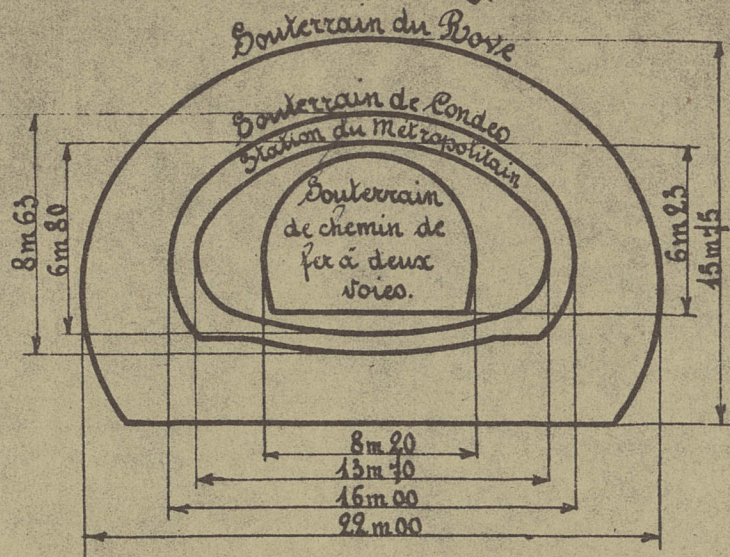 Souterrain du Rove
Souterrain de Condes
Station du Métropolitain
Souterrain
de chemin de
fer à deux
voies.
8m63
6m80
6m23
15m75
8m20
13m70
16m00
22m00